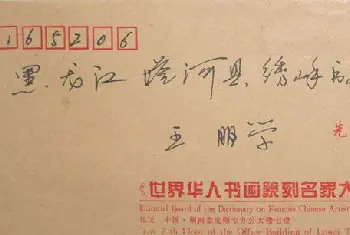 165206
黑龙江 塔河县 绣峰
王 明学
先
《世界华人书画篆刻名家大
Editorial Board of the Dictionary on Famous Chinese Artist
地址 中国·湖南娄底
7th Floor of the Office Building of Loudi